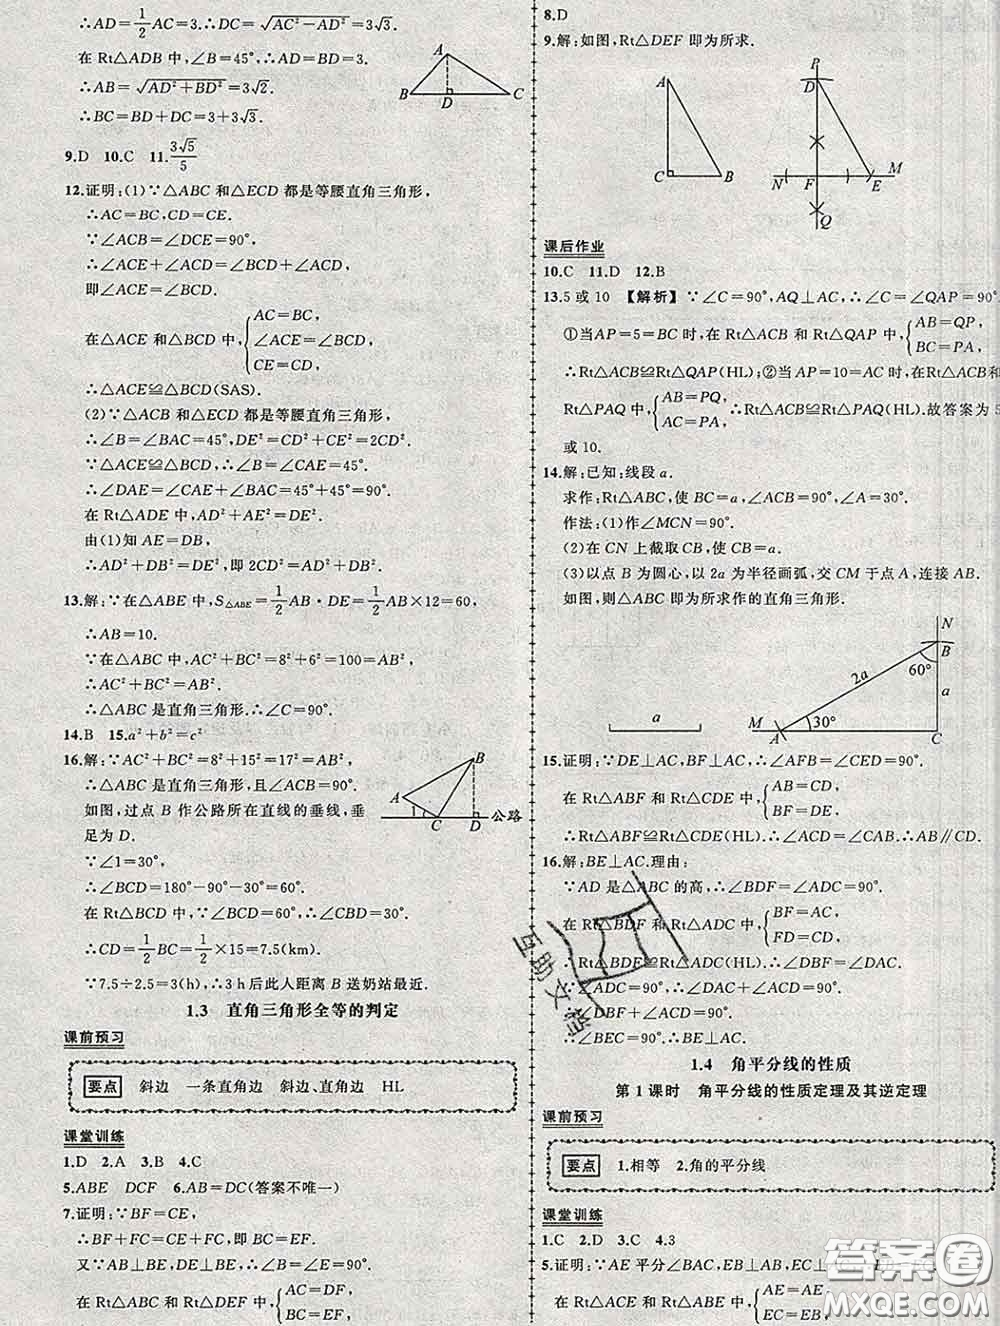 ∴AD=1/2AC=3.∴DC=√(AC²-AD²)=3√3.
在 Rt△ADB 中,∠B=45°,∴AD=BD=3.
∴AB=√(AD²+BD²)=3√2.
∴BC=BD+DC=3+3√3.
A
B
D
C
9.D 10.C 11.3√5/5
12.证明:(1)∵△ABC 和△ECD 都是等腰直角三角形,
∴AC=BC,CD=CE.
∵∠ACB=∠DCE=90°,
∴∠ACE+∠ACD=∠BCD+∠ACD,
即∠ACE=∠BCD.
在△ACE 和△BCD 中,{AC=BC,
∠ACE=∠BCD,
CE=CD,
∴△ACE≌△BCD(SAS).
(2)∵△ACB 和△ECD 都是等腰直角三角形,
∴∠B=∠BAC=45°,DE²=CD²+CE²=2CD².
∵△ACE≌△BCD,∴∠B=∠CAE=45°.
∴∠DAE=∠CAE+∠BAC=45°+45°=90°.
在 Rt△ADE 中,AD²+AE²=DE².
由(1)知 AE=DB,
∴AD²+DB²=DE²,即 2CD²=AD²+DB².
13.解:∵在△ABE 中,S△ABE=1/2AB·DE=1/2AB×12=60,
∴AB=10.
∵在△ABC 中,AC²+BC²=8²+6²=100=AB²,
∴AC²+BC²=AB².
∴△ABC 是直角三角形.∴∠C=90°.
14.B 15.a²+b²=c²
16.解:∵AC²+BC²=8²+15²=17²=AB²,
∴△ABC 是直角三角形,且∠ACB=90°.
如图,过点 B 作公路所在直线的垂线,垂
足为 D.
∵∠1=30°,
∴∠BCD=180°-90°-30°=60°.
在 Rt△BCD 中,∵∠BCD=60°,∴∠CBD=30°.
∴CD=1/2BC=1/2×15=7.5(km).
∵7.5÷2.5=3(h),∴3 h后此人距离 B 送奶站最近.
B
A
1
C
D
公路
1.3 直角三角形全等的判定
课前预习
要点 斜边 一条直角边 斜边、直角边 HL
课堂训练
1.D 2.A 3.B 4.C
5.ABE DCF 6.AB=DC(答案不唯一)
7.证明:∵BF=CE,
∴BF+FC=CE+FC,即 BC=EF.
又∵AB⊥BE,DE⊥BE,∴∠B=∠E=90°.
在 Rt△ABC 和 Rt△DEF 中,{AC=DF,
BC=EF,
8.D
9.解:如图,Rt△DEF 即为所求.
A
C
B
P
D
N
F
E
M
Q
课后作业
10.C 11.D 12.B
13.5或 10 【解析】∵∠C=90°,AQ⊥AC,∴∠C=∠QAP=90°
①当AP=5=BC时,在 Rt△ACB 和 Rt△QAP 中,{AB=QP,
BC=PA,
∴Rt△ACB≌Rt△QAP(HL);②当 AP=10=AC时,在Rt△ACB和
Rt△PAQ 中,{AB=PQ,
AC=PA, ∴Rt△ACB≌Rt△PAQ(HL).故答案为 5
或 10.
14.解:已知:线段 a.
求作:Rt△ABC,使 BC=a,∠ACB=90°,∠A=30°.
作法:(1)作∠MCN=90°.
(2)在 CN 上截取 CB,使 CB=a.
(3)以点 B 为圆心,以 2a 为半径画弧,交 CM 于点 A,连接 AB.
如图,则△ABC 即为所求作的直角三角形.
a
N
B
60°
2a
a
M
A
30°
C
15.证明:∵DE⊥AC,BF⊥AC,∴∠AFB=∠CED=90°.
在 Rt△ABF 和 Rt△CDE 中,{AB=CD,
BF=DE,
∴Rt△ABF≌Rt△CDE(HL).∴∠ACD=∠CAB.∴AB∥CD.
16.解:BE⊥AC.理由:
∵AD 是△ABC 的高,∴∠BDF=∠ADC=90°.
在 Rt△BDF 和 Rt△ADC 中,{BF=AC,
FD=CD,
∴Rt△BDF≌Rt△ADC(HL).∴∠DBF=∠DAC.
∵∠ADC=90°,∴∠DAC+∠ACD=90°.
∴∠DBF+∠ACD=90°.
∴∠BEC=90°.∴BE⊥AC.
互助文档
1.4 角平分线的性质
第 1 课时 角平分线的性质定理及其逆定理
课前预习
要点 1.相等 2.角的平分线
课堂训练
1.C 2.D 3.C 4.3
5.证明:∵AE 平分∠BAC,EB⊥AB,EC⊥
在 Rt△ACE 和 Rt△ABE 中,{AE=AE,
EC=EB,
答案圈
MXQE.COM